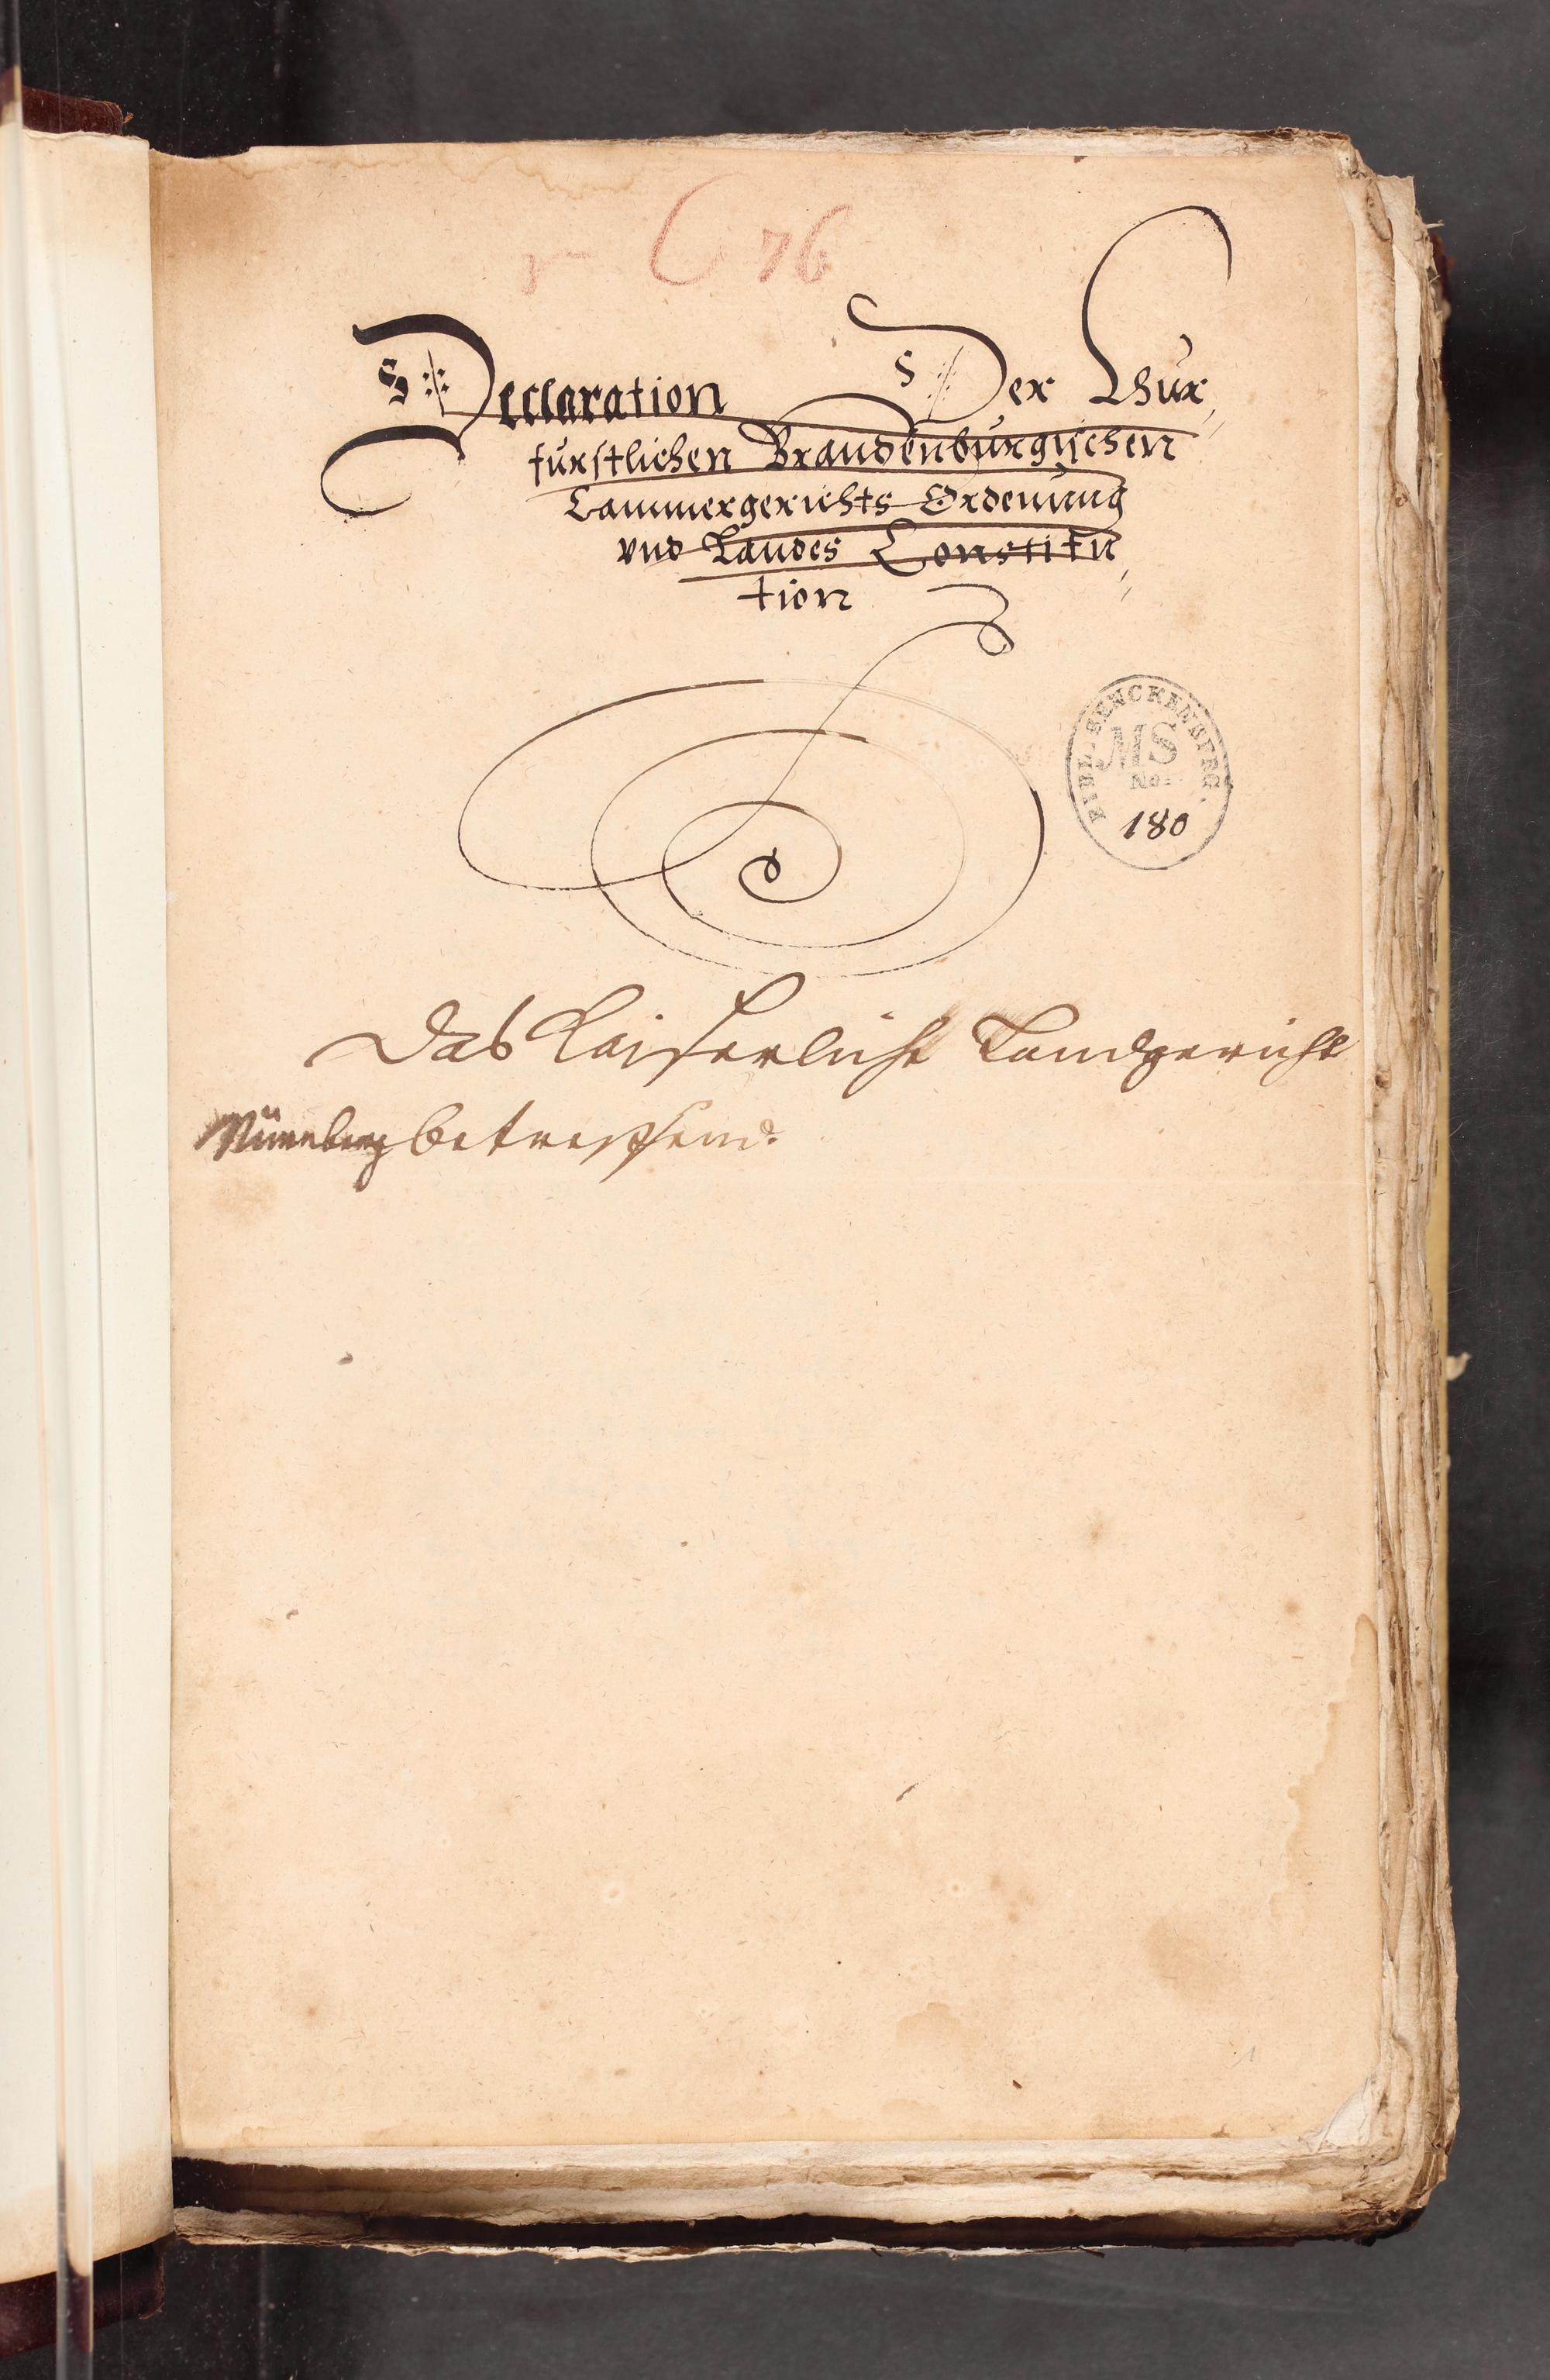 C 76
Declaration Der Chur⸗
fürstlichen Brandenburgischen
Cammergerichts Ordenung
vnd Landes Constitu⸗
tion
BIBL. SENCKENBERG.
MS
No:
180
Das Kaiserliche Landgericht
Nürnberg betreffend.